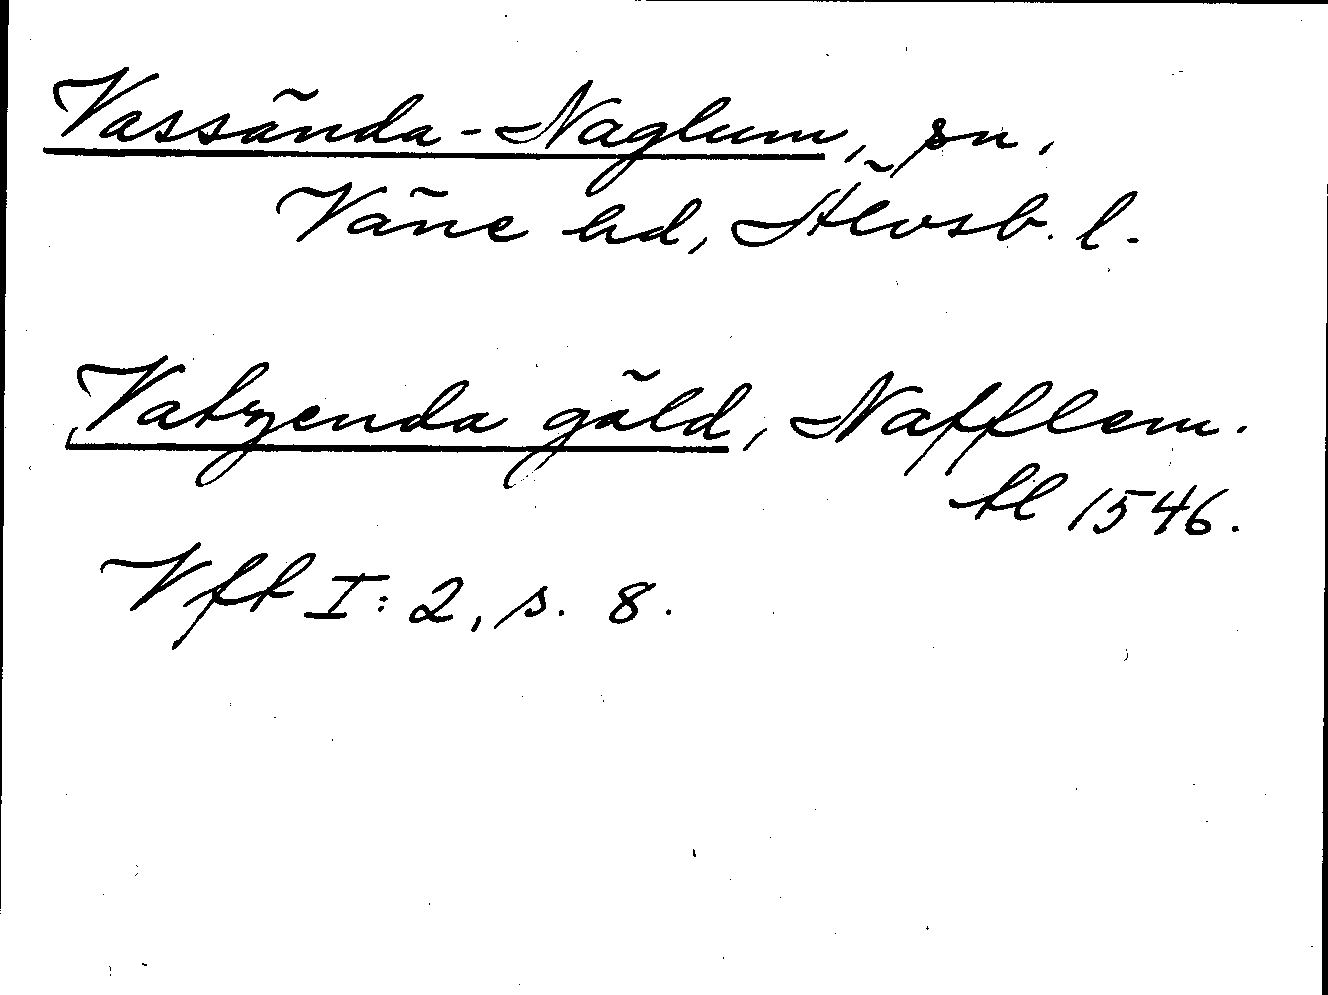 Vassända-Naglum, sn,
Väne hd, Älvsb. l.
Vatzenda gäld, Nafflem.
tl 1546.
Vft I:2, s. 8.